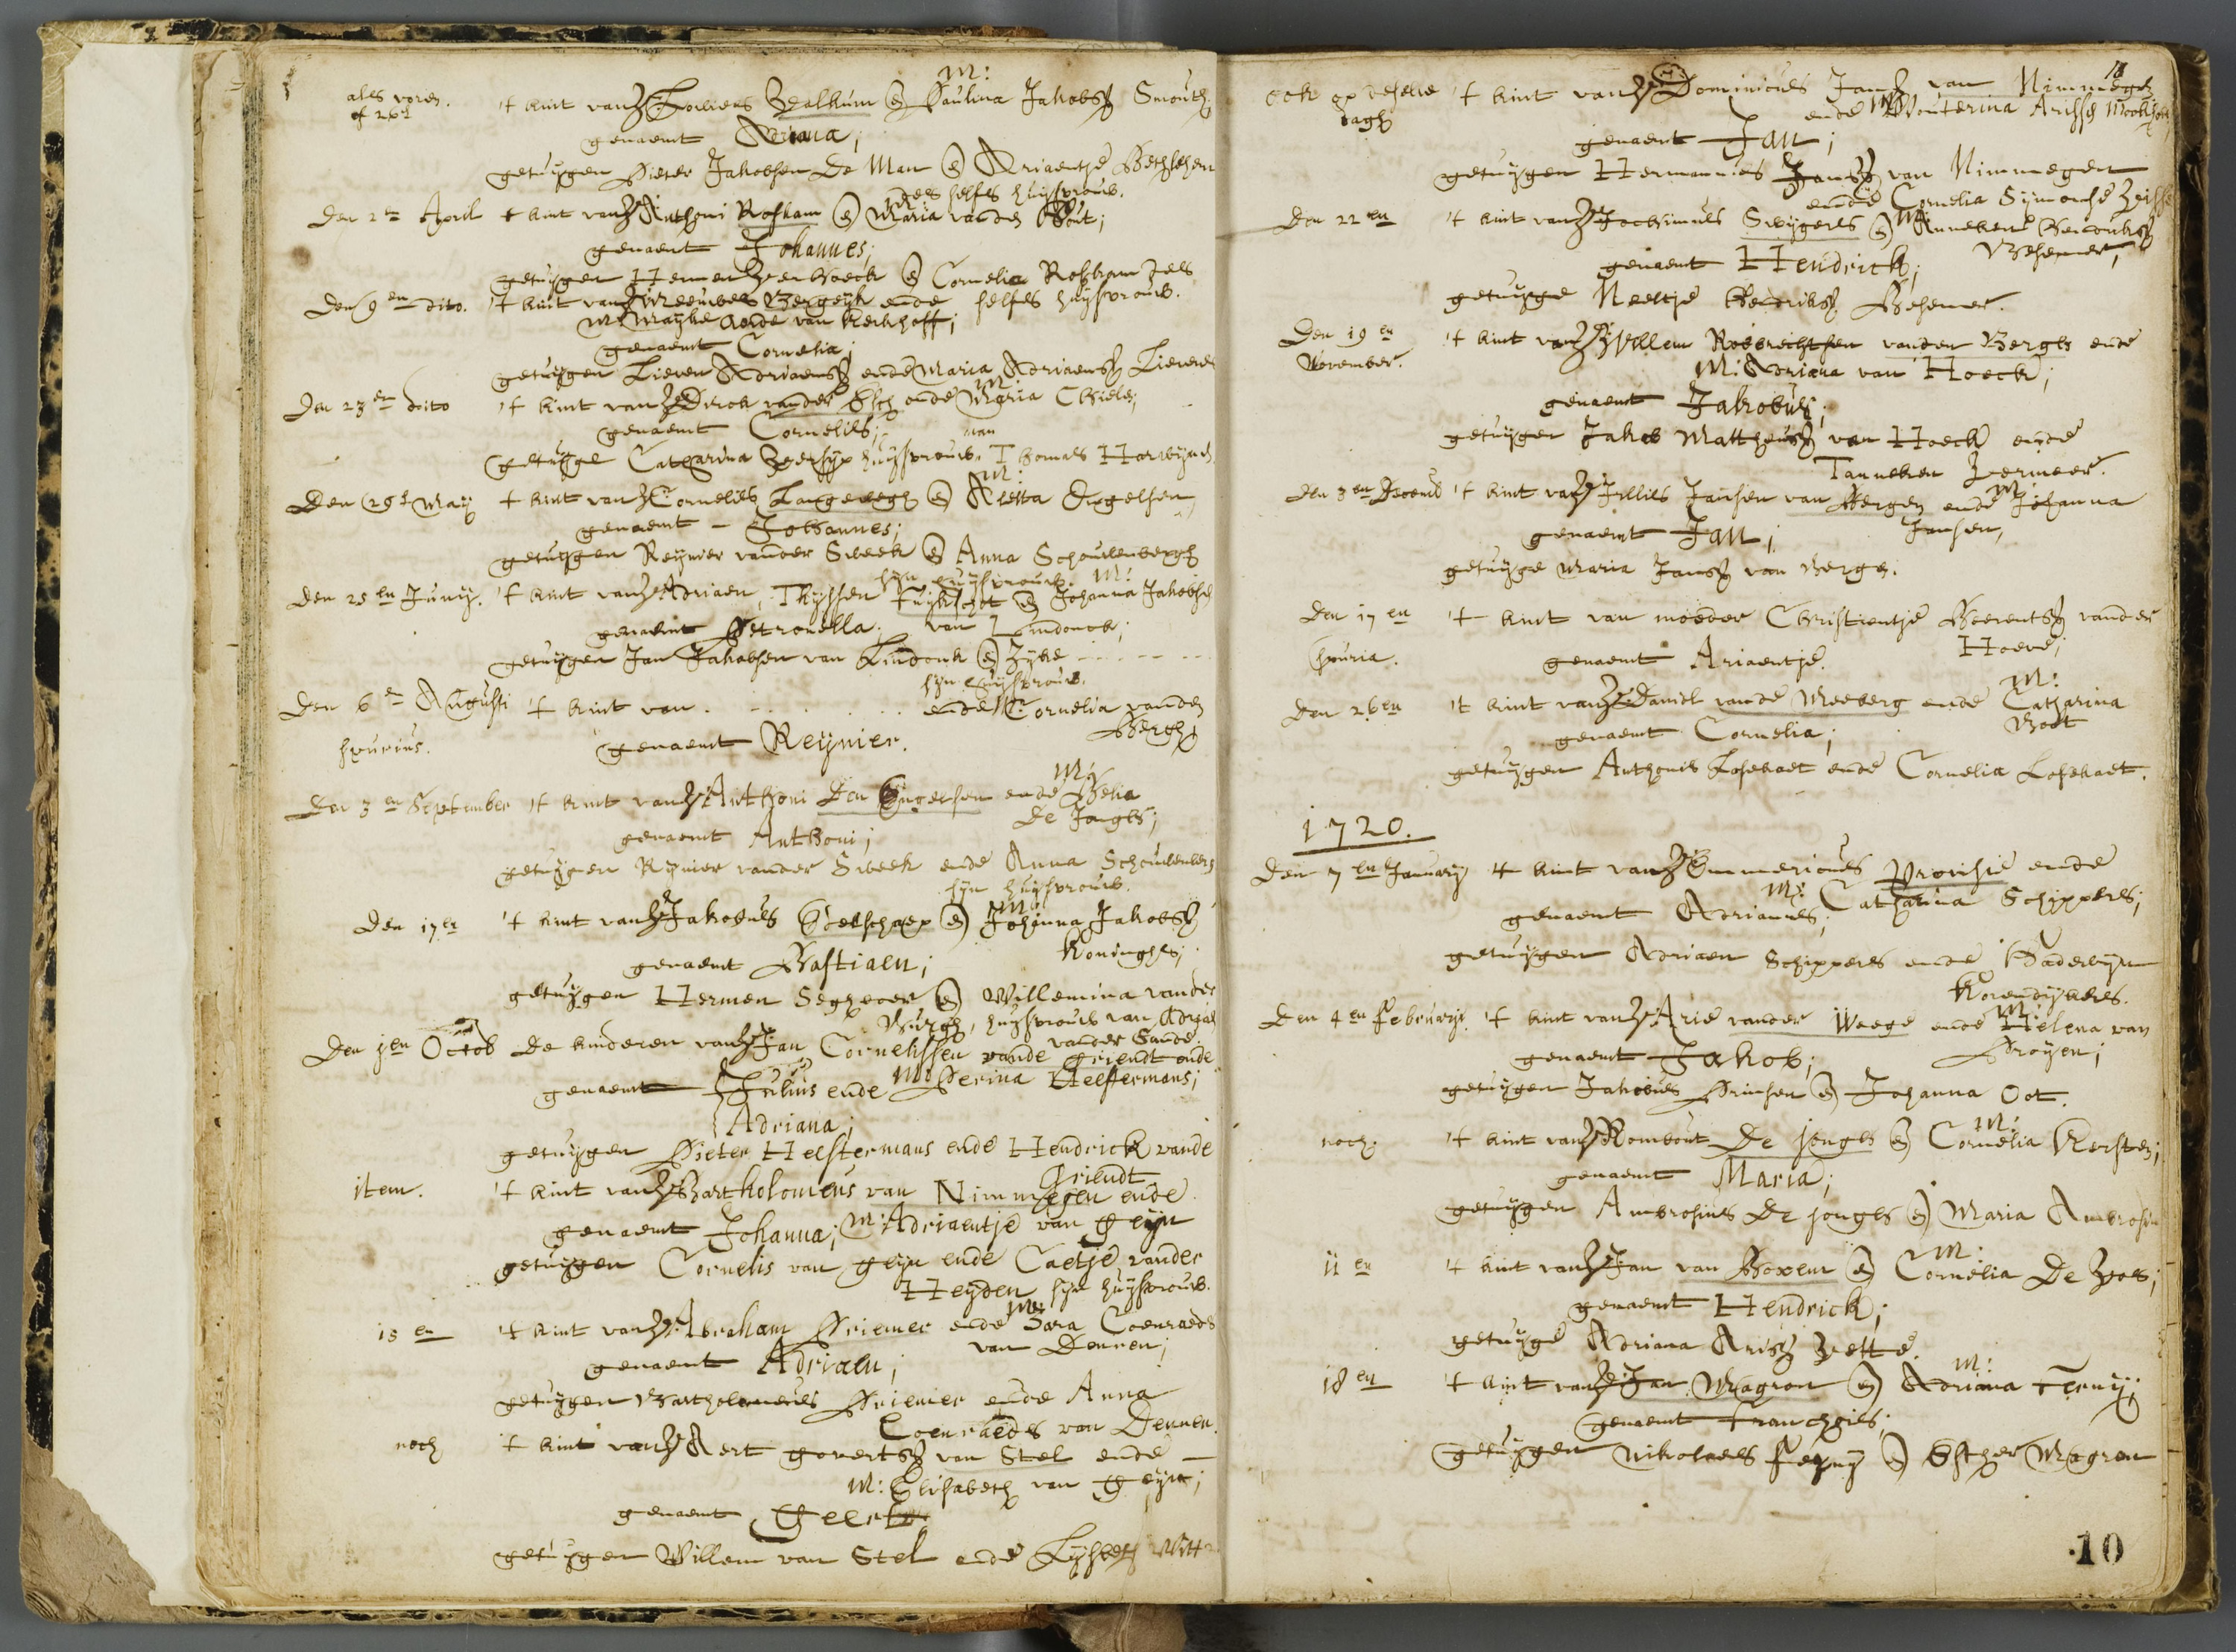 als voren. 't kint van V: Lowies Zealkum & M: Paulina Jakobsz Smouth
of 26e
genaemt Adriana;
getuijgen Pieter Jakobsen De Man & Ariaentje Bethlehem
des selfs huijsvrouw.
Den 2en April 't kint van V: Anthoni Rosham & M: Maria vanden Bout;
genaemt Johannes;
getuijgen Hermen Verhoeck & Cornelia Rosham des
selfs huijsvrouw.
Den 9en dito. 't kint van V: Meeuwes Bergeijk ende
M: Maijke Aerde van Kerkhoff;
genaemt Cornelia;
getuijgen Lieven Adriaensz ende Maria Adriaensz Lievens
Den 23en dito 't kint van V: Dirck vander Esch ende M: Maria Chiele;
genaemt Cornelis;
getuijge Catharina Verhijp huijsvrouw van Thomas Herwijnen
Den 29e Maij 't kint van V: Cornelis Langewegh & M: Aletta Engelsen
genaemt - Johannes;
getuijgen Reijnier vander Sweek & Anna Schoutenbergh
sijn huijsvrouw.
Den 25en Junij. 't kint van V: Adriaen Thijssen Fuijkschot & M: Johanna Jakobsen
genaemt Petronella; van Lindonck;
getuijgen Jan Jakobsen van Lindonk & Zijke - - - -
sijn huijsvrouw.
Den 6en Augusti 't kint van . . . . . . ende M: Cornelia vanden
spurius. Bergh;
genaemt Reijnier.
Den 3en September 't kint van V: Anthoni Den Engelsen ende M: Pelia
De Jongh;
genaemt Anthoni;
getuijgen Reijnier vander Sweek ende Anna Schoutenbergh
sijn huijsvrouw.
Den 17en 't kint van V: Jakobus Goetschap & M: Johanna Jakobsz
Koninghs;
genaemt Bastiaen;
getuijgen Hermen Seghboer & Willemina vander
Burgh, huijsvrouw van Adriaen
vander Sande.
Den 1en Octob De kinderen van V: Jan Cornelissen vande Griendt ende
genaemt Julius ende M: Perina Helstermans;
Adriana;
getuijgen Pieter Helstermans ende Hendrick vande
Griendt
item. 't kint van V: Bartholomeus van Nimmegen ende
genaemt Johanna; M: Adriaentje van Geijn
getuijgen Cornelis van Geijn ende Caetje vander
Heijden sijn huijsvrouw.
15en 't kint van V: Abraham Priemer ende M: Sara Coenraeds
van Deuren;
genaemt Adriaen;
getuijgen Bartholomeus Priemer ende Anna
Coenraeds van Deuren.
noch 't kint van V: Aert Govertsz van Stel ende
M: Elisabeth van Geijn;
genaemt Geerte
getuijgen Willem van Stel ende Lijsbeth Witt
ook op deselve 't kint van V: Dominicus Jansz van Nimmegen
dagh ende M: Wouterina Arissen
genaemt Jan;
getuijgen Hermannus Jansz van Nimmegen
ende Cornelia Sijmonse
Den 22en 't kint van V: Jochimus Swijgers & M: Anneken Hendriksz
Behemer;
genaemt Hendrick;
getuijge Neeltje Hendriksz Behemer.
Den 19en 't kint van V: Willem Robbrechtsen vanden Bergh ende
November. M: Adriana van Hoeck;
genaemt Jakobus;
getuijgen Jakob Mattheusz van Hoeck ende
Tanneken Vermeer.
Den 3en Decemb 't kint van V: Jillis Jansen van Bergen ende M: Johanna
Jansen;
genaemt Jan;
getuijge Maria Jansz van Berge.
Den 17en 't kint van moeder Christientje Beerentsz vander
Spuria. Hoeve;
genaemt Ariaentje.
Den 26en 't kint van V: Daniel vande Meeberg ende M: Catharina
Boot
genaemt Cornelia;
getuijgen Anthonis Losekaet ende Cornelia Losekaet.
1720.
Den 7en January 't kint van V: Emmericus Provisie ende
M: Catharina Schippers;
genaemt Adrianus;
getuijgen Adriaen Schippers ende Baderijn
Korendijkers.
Den 4en February. 't kint van V: Arie vander Weege ende M: Helena van
Proijen;
genaemt Jakob;
getuijgen Jakobus Prinsen & Johanna Oot.
noch. 't kint van V: Rombout De Jongh & M: Cornelia Kersten;
genaemt Maria;
getuijgen Ambrosius De Jongh & Maria Ambrosi
11en 't kint van V: Jan van Boxem & M: Cornelia De Vos;
genaemt Hendrick;
getuijge Adriana Arisz Vette.
18en 't kint van V: Jan Magron & M: Adriana Fernij;
genaemt Franchois;
getuijgen Nikolaes Fernij & Esther Magron
10